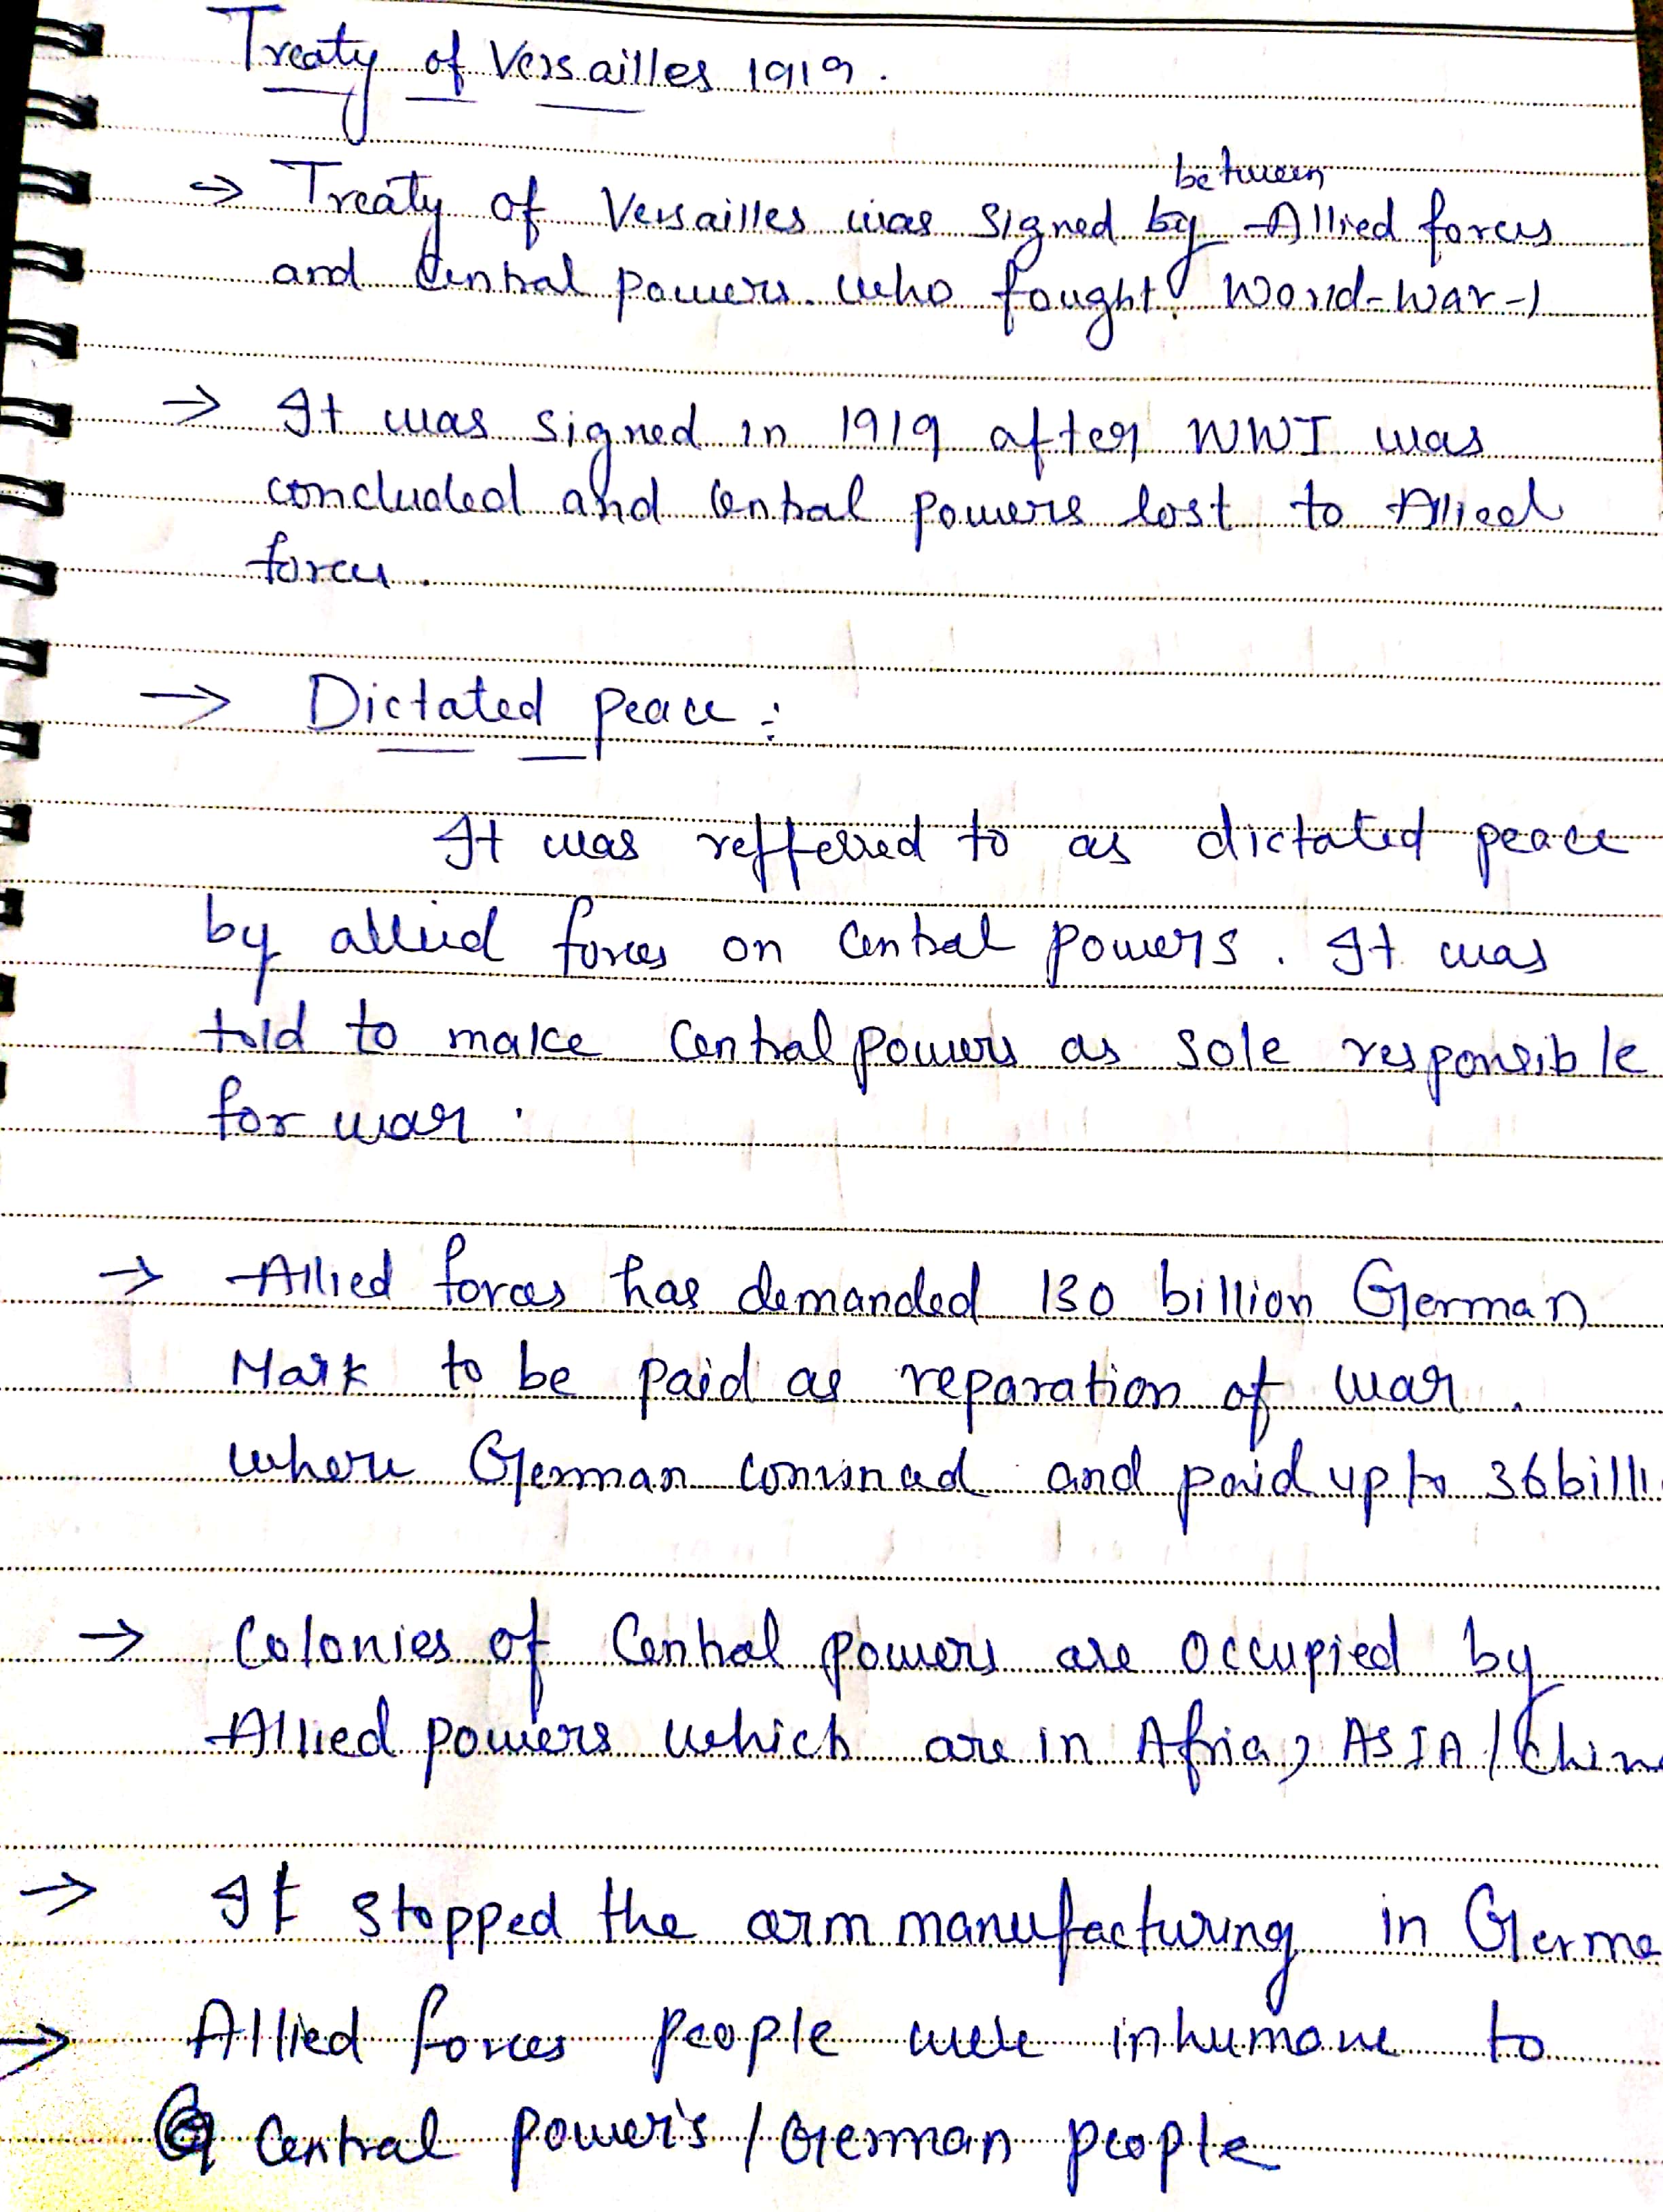 Treaty of Versailles 1919.
between
→ Treaty of Versailles was signed by Allied forces
and Central powers. who fought World-War-1
→ It was signed in 1919 after WWI was
concluded and Central powers lost to Allied
forces.
→ Dictated peace :
It was reffered to as dictated peace
by allied forces on Central powers. It was
told to make Central powers as sole responsible
for war.
→ Allied forces has demanded 130 billion German
Mark to be paid as reparation of war.
where German and paid up to 36 billi
→ Colonies of Central powers are occupied by
Allied powers which are in Africa, ASIA / Chin
→ It stopped the arm manufacturing in Germa
→ Allied forces people were inhumane to
Central power's / German people